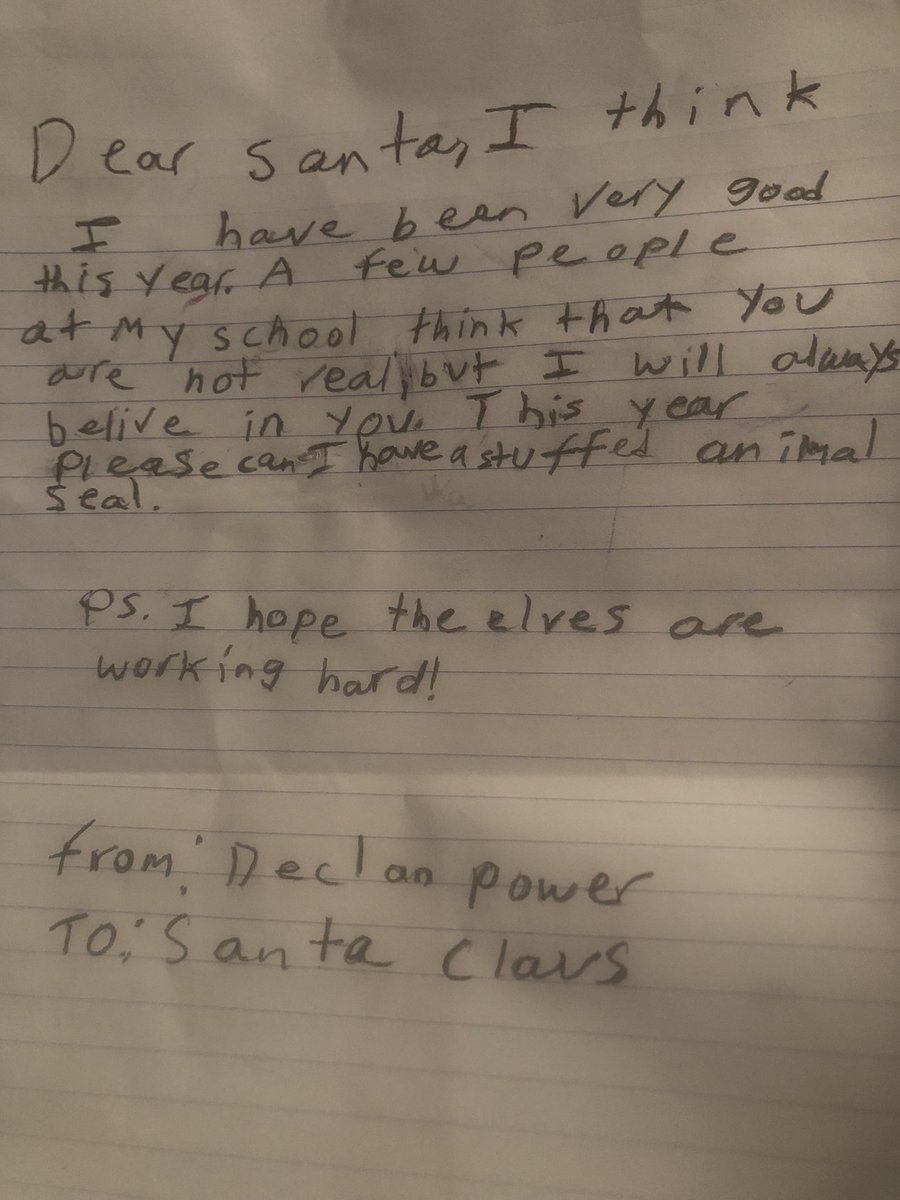 Dear Santa, I think
I have been very good
this year. A few people
at my school think that you
are not real, but I will always
belive in you. This year
please can I have a stuffed animal
seal.
Ps. I hope the elves are
working hard!
from: Declan power
To: Santa Claus